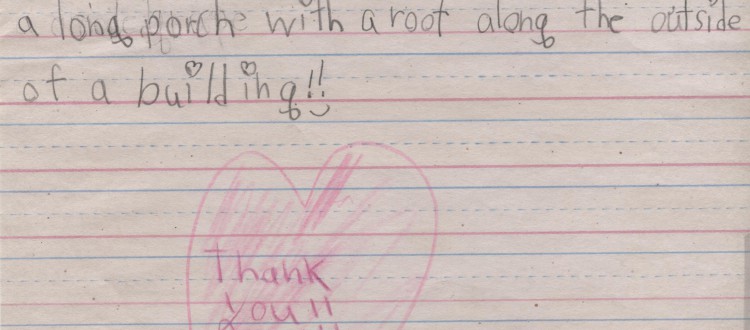 a long porch with a roof along the outside
of a building!!
Thank
you!!